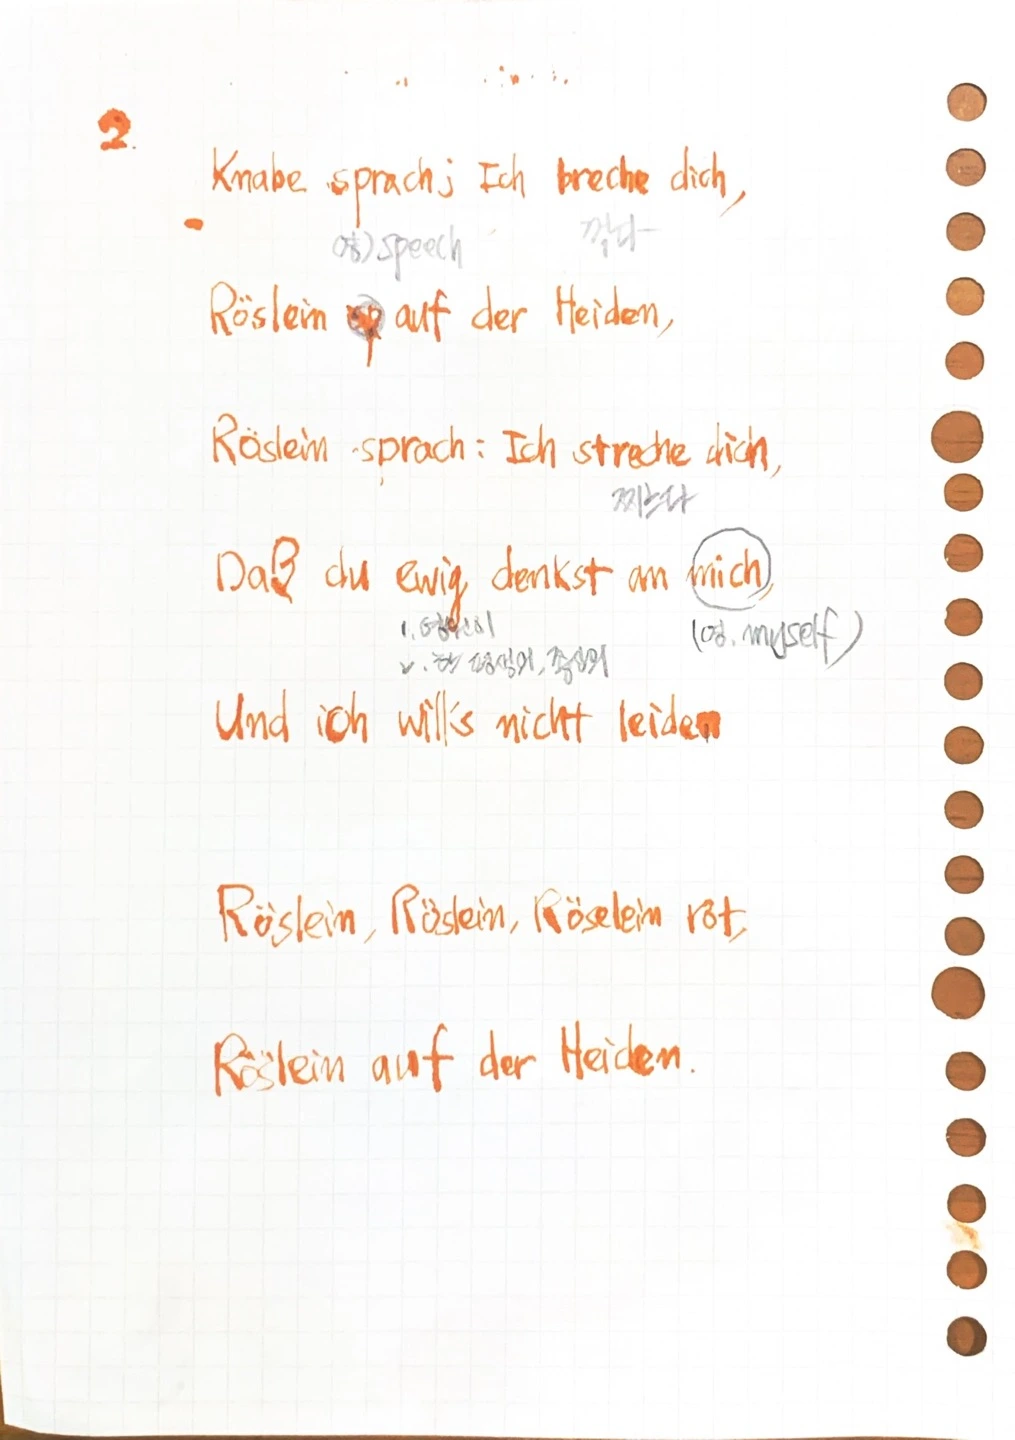 2.
Knabe sprach; Ich breche dich,
영)speech 꺾다
Röslein auf der Heiden,
Röslein sprach: Ich streche dich,
찌르다
Daß du ewig denkst an mich,
1. 영원히 (영. myself)
2. 한 평생의, 종신의
Und ich will's nicht leiden
Röslein, Röslein, Röselein rot,
Röslein auf der Heiden.